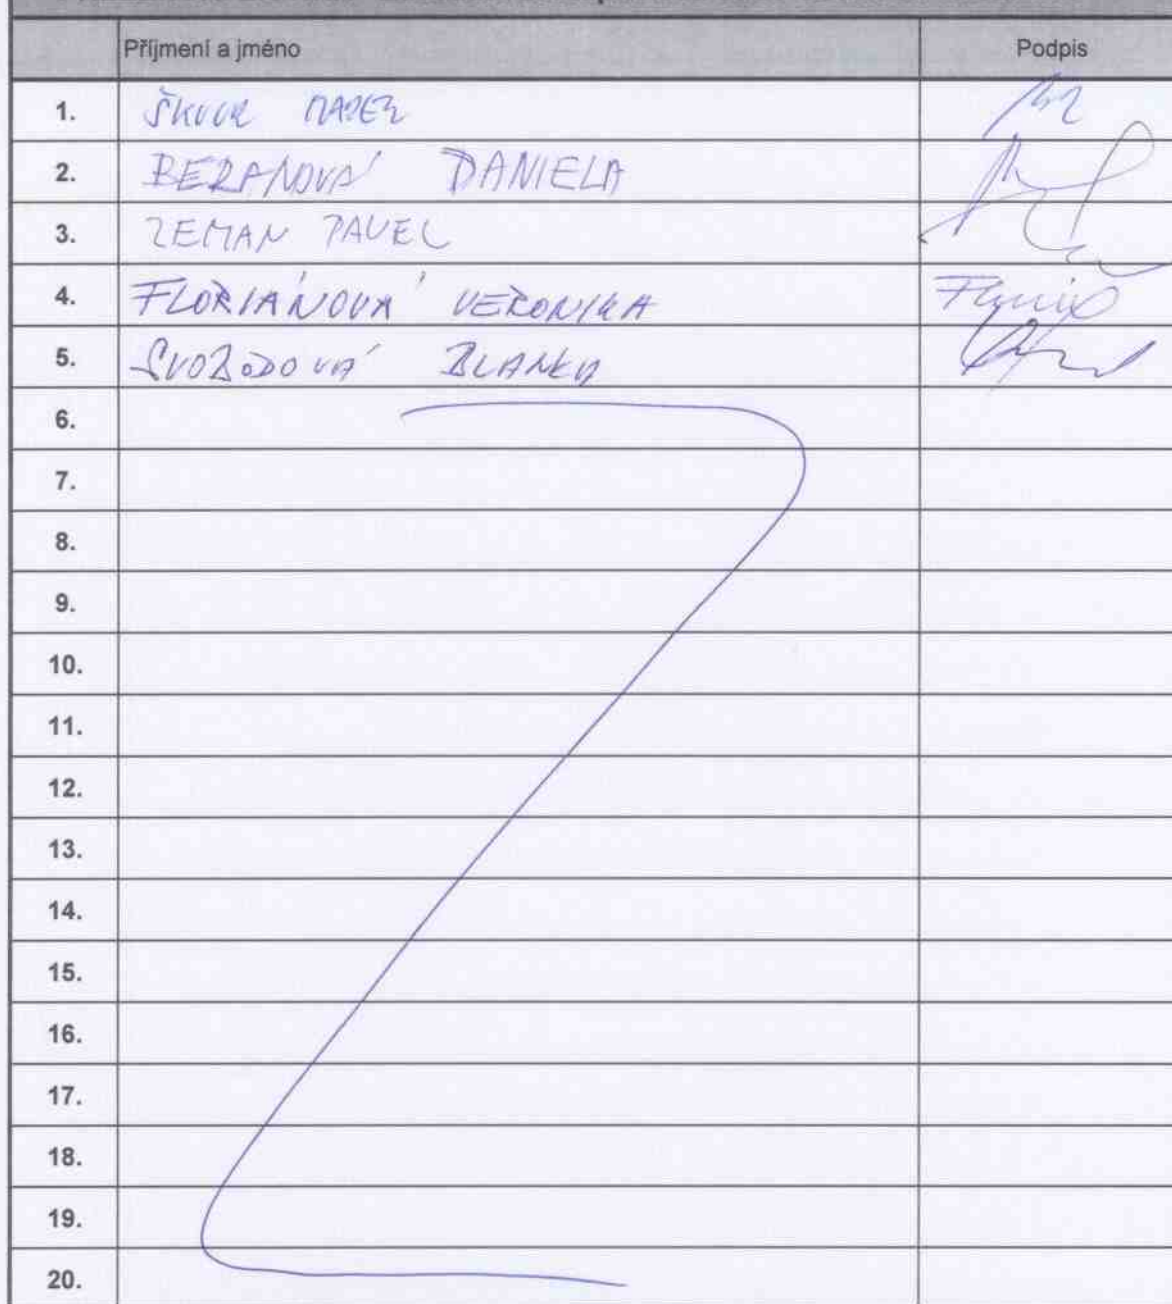 Příjmení a jméno Podpis
1. ŠKVOR MAREK
2. BERANOVÁ DANIELA
3. ZEMAN PAVEL
4. FLORIÁNOVÁ VERONIKA
5. SVOBODOVÁ BLANKA
6.
7.
8.
9.
10.
11.
12.
13.
14.
15.
16.
17.
18.
19.
20.